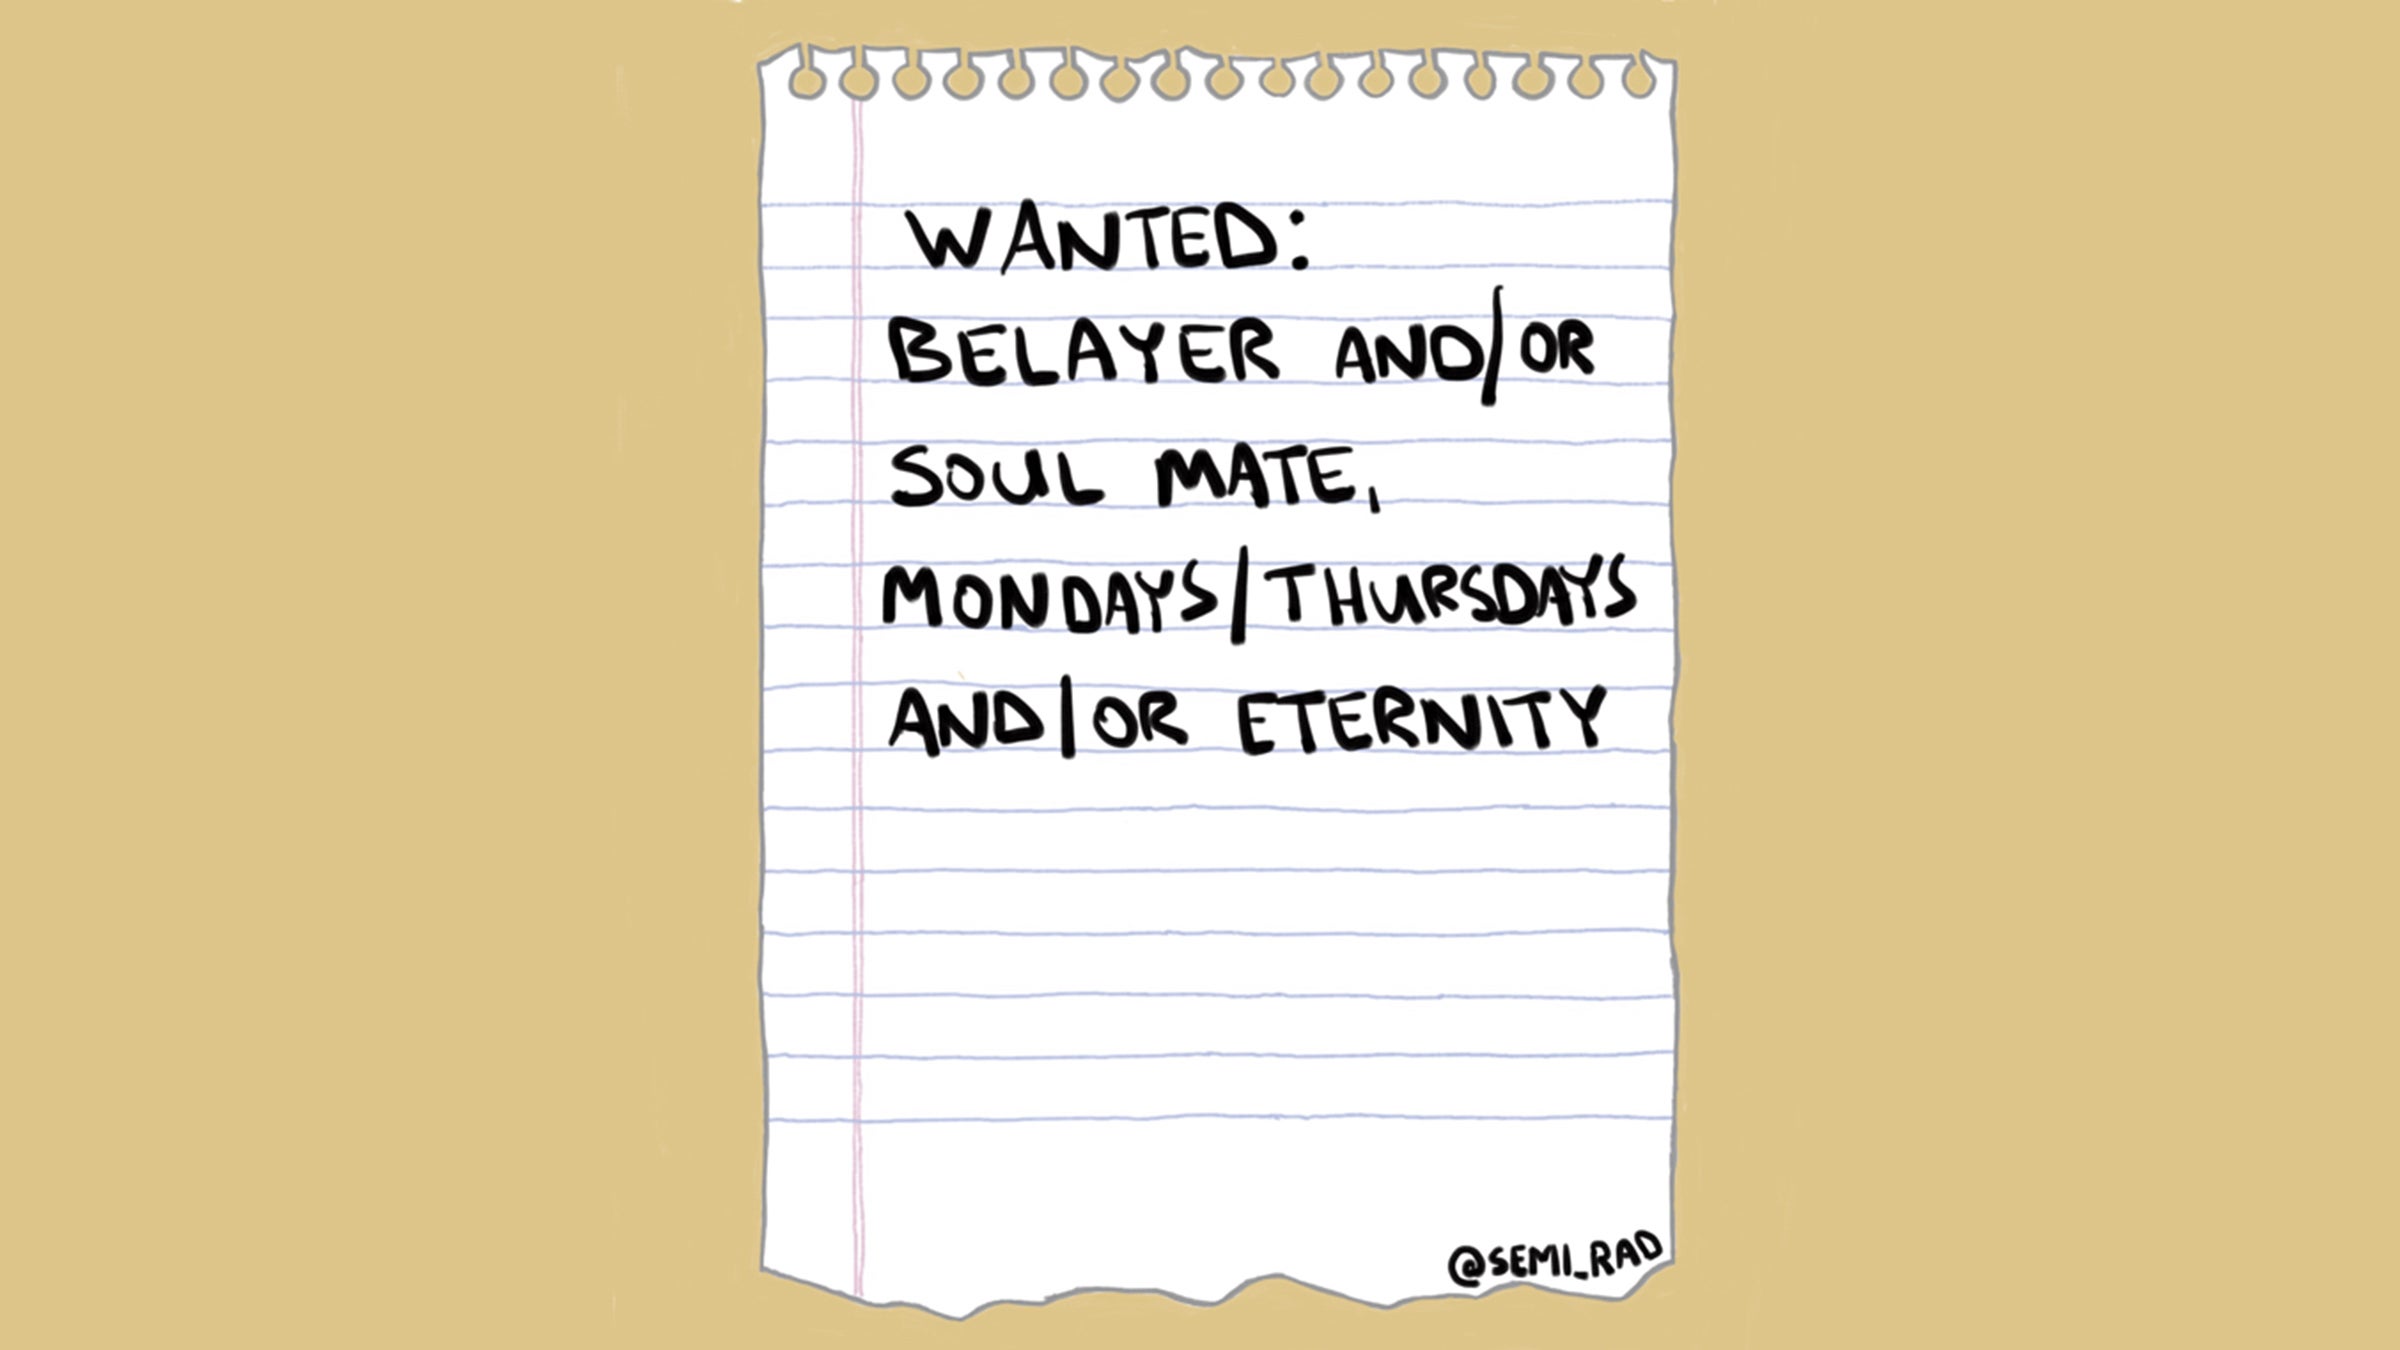 WANTED:
BELAYER AND/OR
SOUL MATE,
MONDAYS/THURSDAYS
AND/OR ETERNITY
@SEMI_RAD